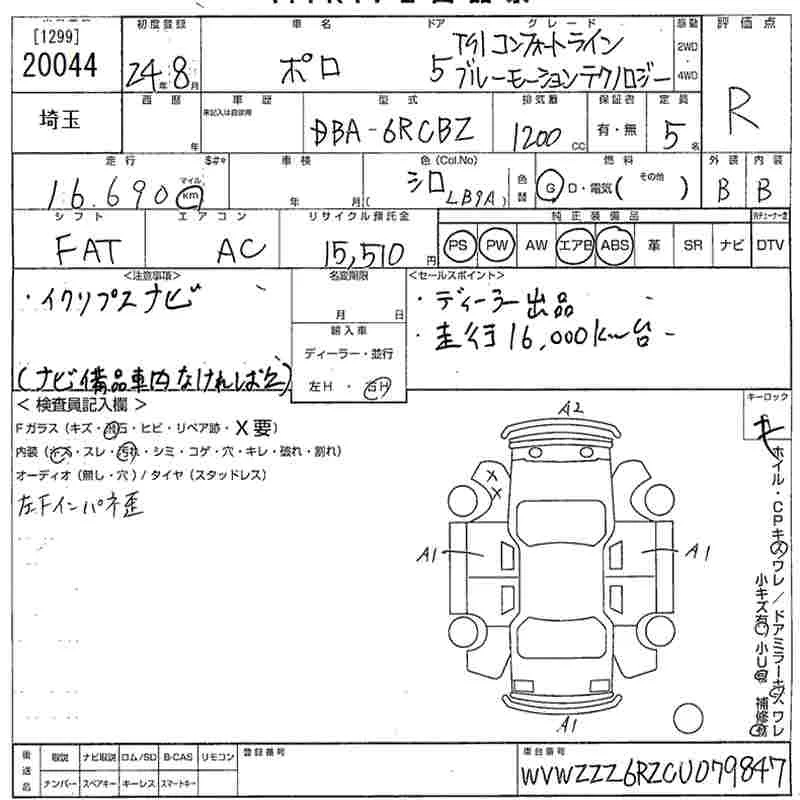 [1299]
20044
初度登録
24年8月
車名
ポロ
ドア
5
グレード
TSI コンフォートライン
ブルーモーションテクノロジー
駆動
2WD
4WD
評価点
R
埼玉
西暦
年
車歴
未記入は自家用
型式
DBA-6RCBZ
排気量
1200 CC
保証書
有・無
定員
5名
走行
$#*
16.690
マイル
km
車検
年 月(
色(Col.No)
シロ
LB9A)
色替
燃料
G D・電気( その他 )
外装
B
内装
B
シフト
FAT
エアコン
AC
リサイクル預託金
15,510円
純正装備品
PS PW AW エアB ABS 革 SR ナビ DTV
<注意事項>
・イクリプスナビ
(ナビ備品車内なければ欠)
名変期限
月 日
輸入車
ディーラー・並行
左H・右H
<セールスポイント>
・ディーラー出品
・走行16,000km台
<検査員記入欄>
Fガラス(キズ・飛石・ヒビ・リペア跡・X要)
内装(キズ・スレ・汚れ・シミ・コゲ・穴・キレ・破れ・割れ)
オーディオ(無し・穴)/タイヤ(スタッドレス)
左Fインパネ歪
キーロック
A2
X
X
A1
A1
A1
ホイル・CPキズワレ/ドアミラーキズワレ
小キズ有 小U 補修
後送品
取説 ナビ取説 ロム/SD B-CAS リモコン
ナンバー スペアキー キーレス スマートキー
登録番号
車台番号
WVWZZZ6RZCU079847